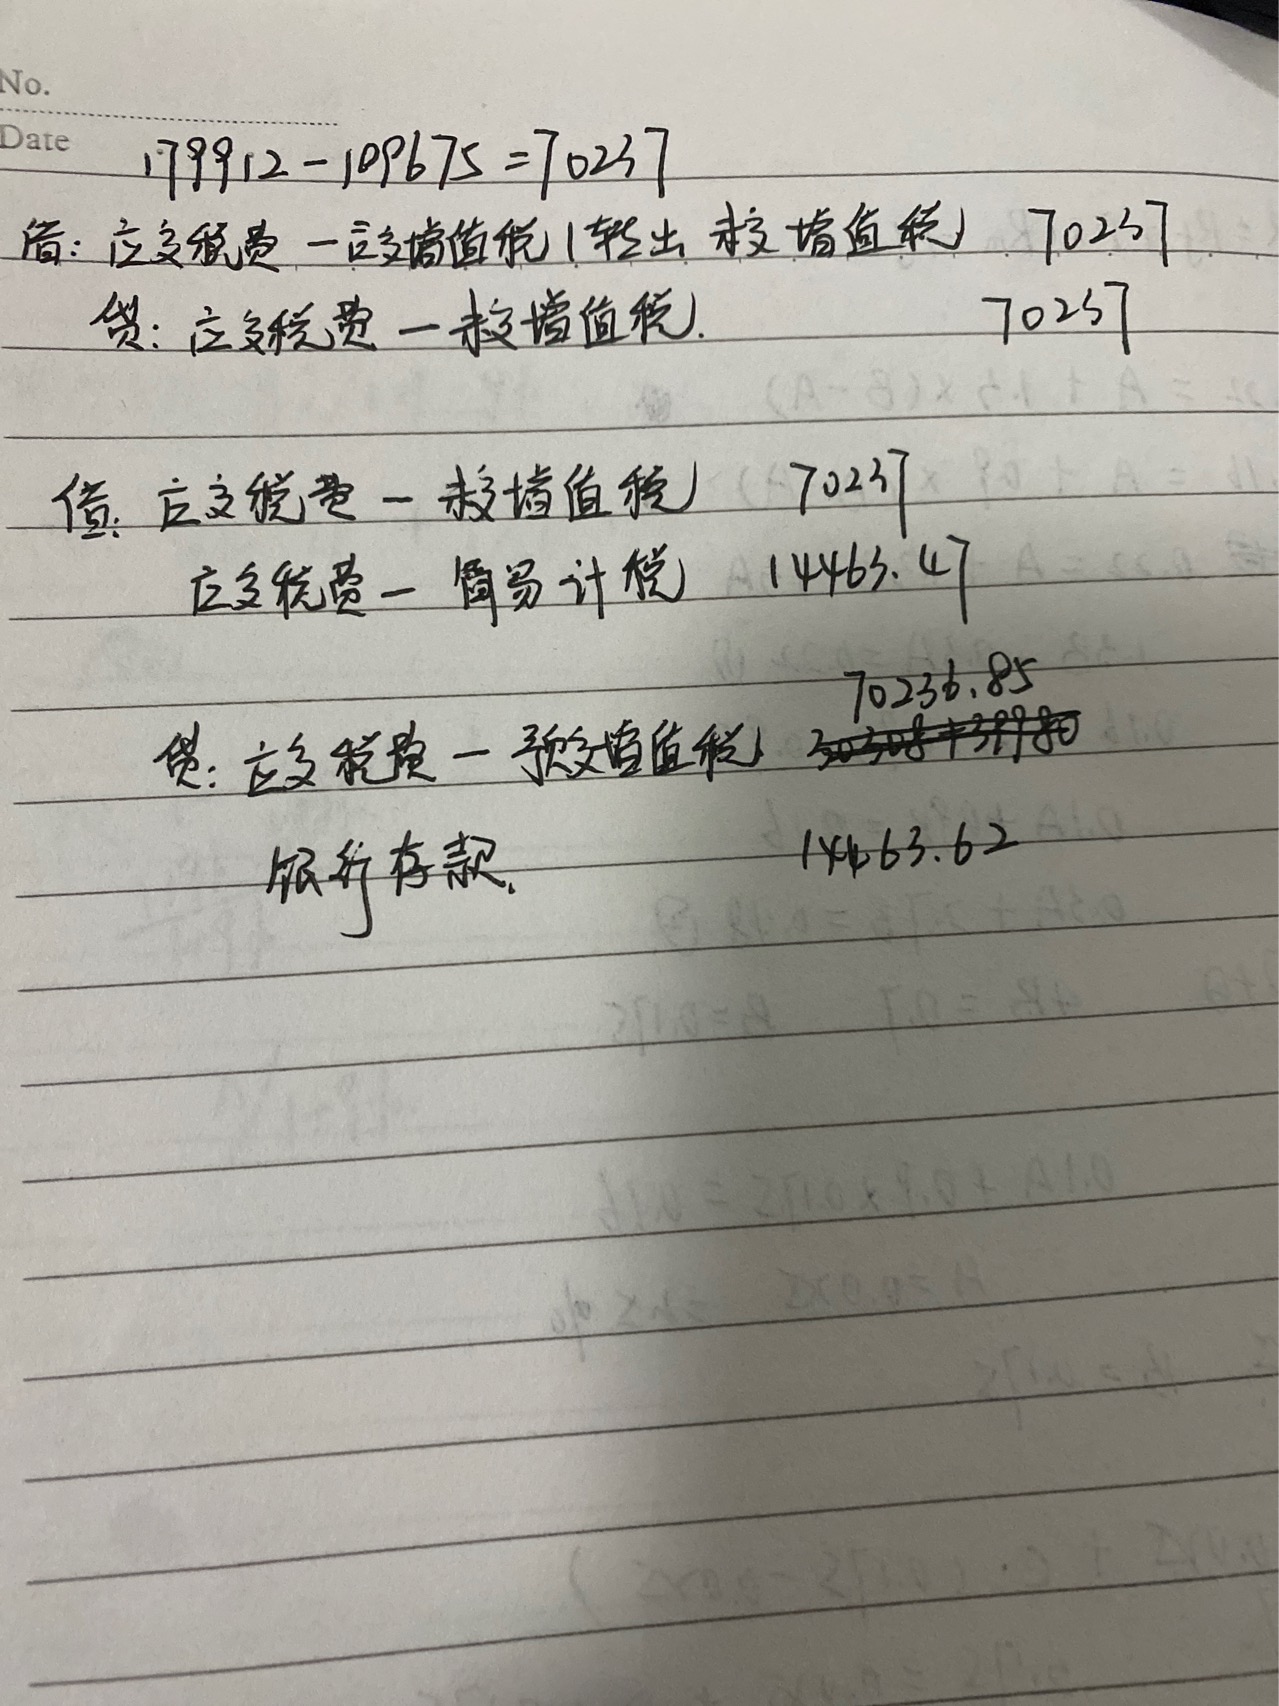 No.
Date
179912-109675=70237
借：应交税费一应交增值税(转出未交增值税) 70237
贷：应交税费一未交增值税. 70237
借：应交税费一未交增值税 70237
应交税费一简易计税 14463.47
70236.85
贷：应交税费一预交增值税
银行存款. 14463.62